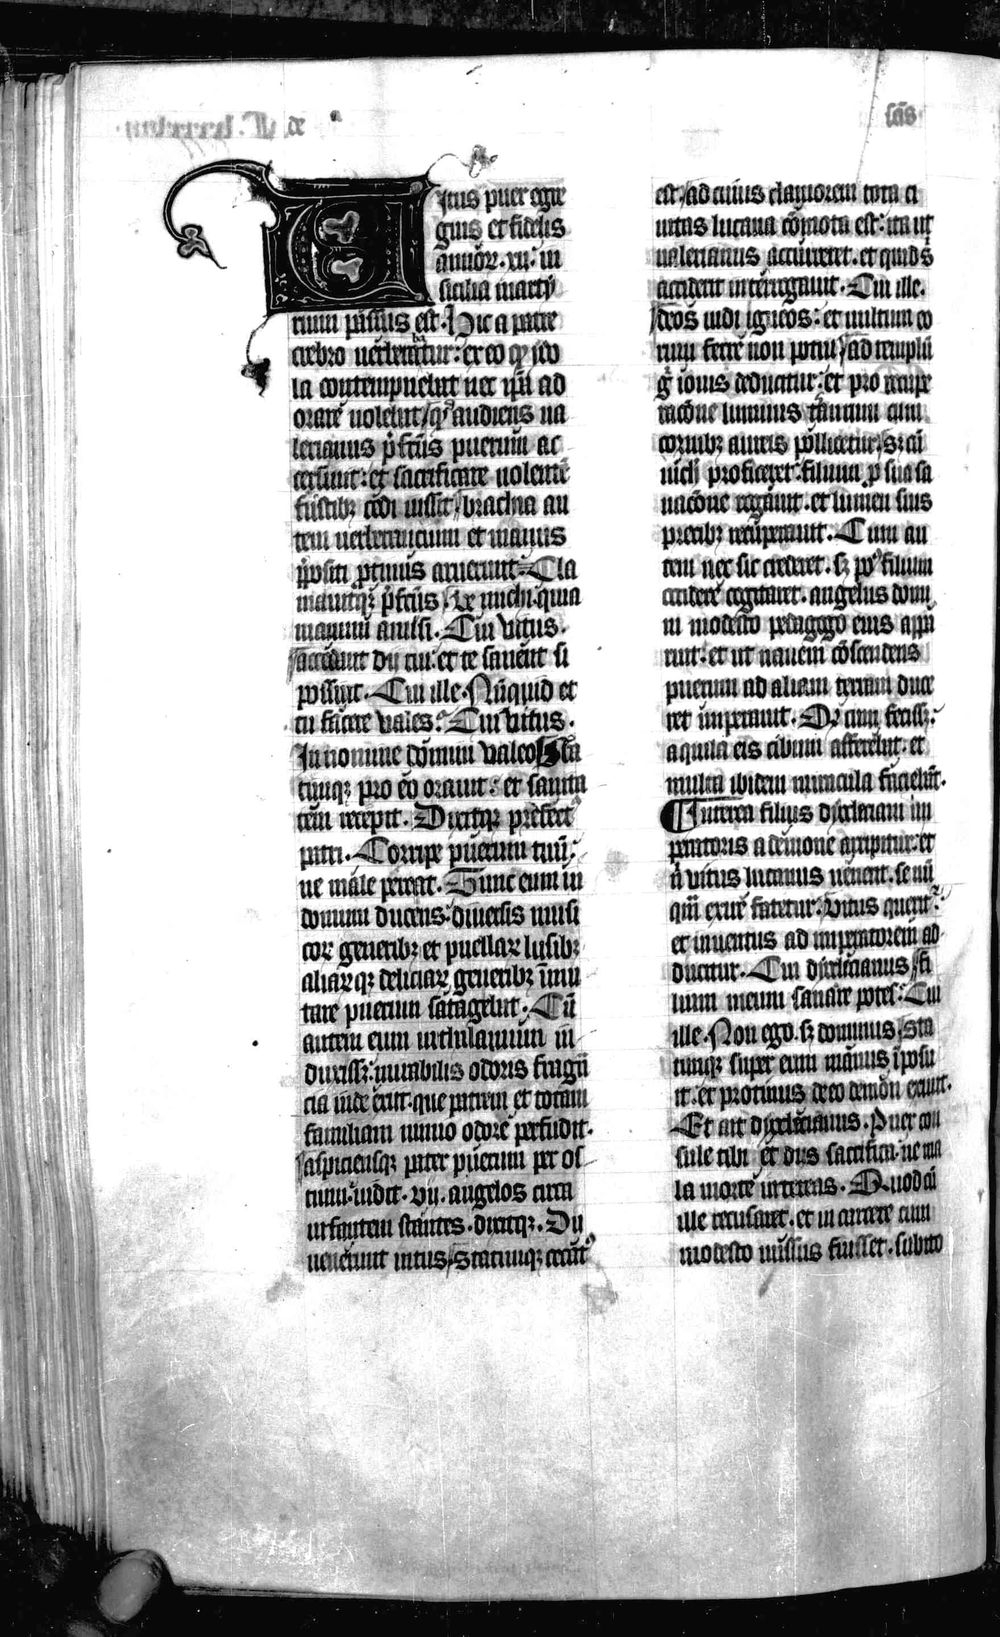 scs
Vitus puer egre
gius et fidelis
annoꝝ. xii. in
sicilia marty
rium passus est. Hic a patre
crebro uerberatur: ex eo qͥ ydo
la contempnebat nec ip̄a ad
orare uolebat, qͩ audiens ua
lerianus p̄fectus puerum ac
cersiuit: et sacrificare nolentē
fustibꝫ cedi iussit, brachia au
tem uerberancium et manus
p̄positi protinus aruerunt. Cla
mauitqꝫ p̄fectus. Ve michi quia
manum amisi. Cui Vitus.
accedant dij tui: et te sanent si
possunt. Cui ille. Nūquid et
tu facere vales. Cui vitus.
In nomine domini valeo. Sta
timqꝫ pro eo orauit: et sanita
tem recepit. Dixitqꝫ prefectꝰ
patri. Corripe puerum tuū.
ne male pereat. Tunc eum in
domum ducens: diuersis musi
coꝝ generibꝫ et puellaꝝ lusibꝫ
aliaꝝqꝫ deliciaꝝ generibꝫ īmu
tare puerum satagebat. Cū
autem eum in thalamum in
duxissꝫ: mirabilis odoris fragrā
cia inde exiit. que patrem et totam
familiam nimio odore perfudit.
aspiciensqꝫ pater puerum per os
tium: uidit. vii. angelos circa
infantem stantes. dixitqꝫ. Dij
uenerunt intus, statimqꝫ cecatꝰ
est, ad cuius clamorem tota ci
uitas lucana cōmota est: ita ut
ualerianus accurreret. et quid ei
accideret interrogauit. Cui ille.
deos uidi igneos: et uultum eo
rum ferre non potui, ad templū
g̊ iouis deducitur: et pro recupe
racōne luminis thaurum cum
cornibꝫ aureis pollicetur. sꝫ cū
nichil proficeret: filium pro sua sa
nacōne rogauit. et lumen suis
precibꝫ recuperauit. Cum au
tem nec sic crederet. sꝫ poꝰ filium
occidere cogitaret. angelus domi
ni modesto pedagogo eius appa
ruit. et ut nauem cōscendens
puerum ad aliam terram duce
ret imperauit. Qͦd cum fecissꝫ:
aquila eis cibum afferebat. et
multa ibidem miracula faciebāt.
Interea filius dyocleciani im
peratoris a demone arripitur: et
nͥ vitus lucanus ueniat. se nū
quā exire fatetur. Vitus querit:
et inuentus ad imperatorem ad
ducitur. Cui dyoclecianus, fi
lium meum sanare potes. Cui
ille. Non ego. sꝫ dominus, sta
timqꝫ super eum manus īposu
it. et protinus de eo demon exiuit.
Et ait dyoclecianus. Puer con
sule tibi et diis sacrifica. ne ma
la morte intereas. Quod cū
ille recusaret. et in carcere cum
modesto missus fuisset. subito